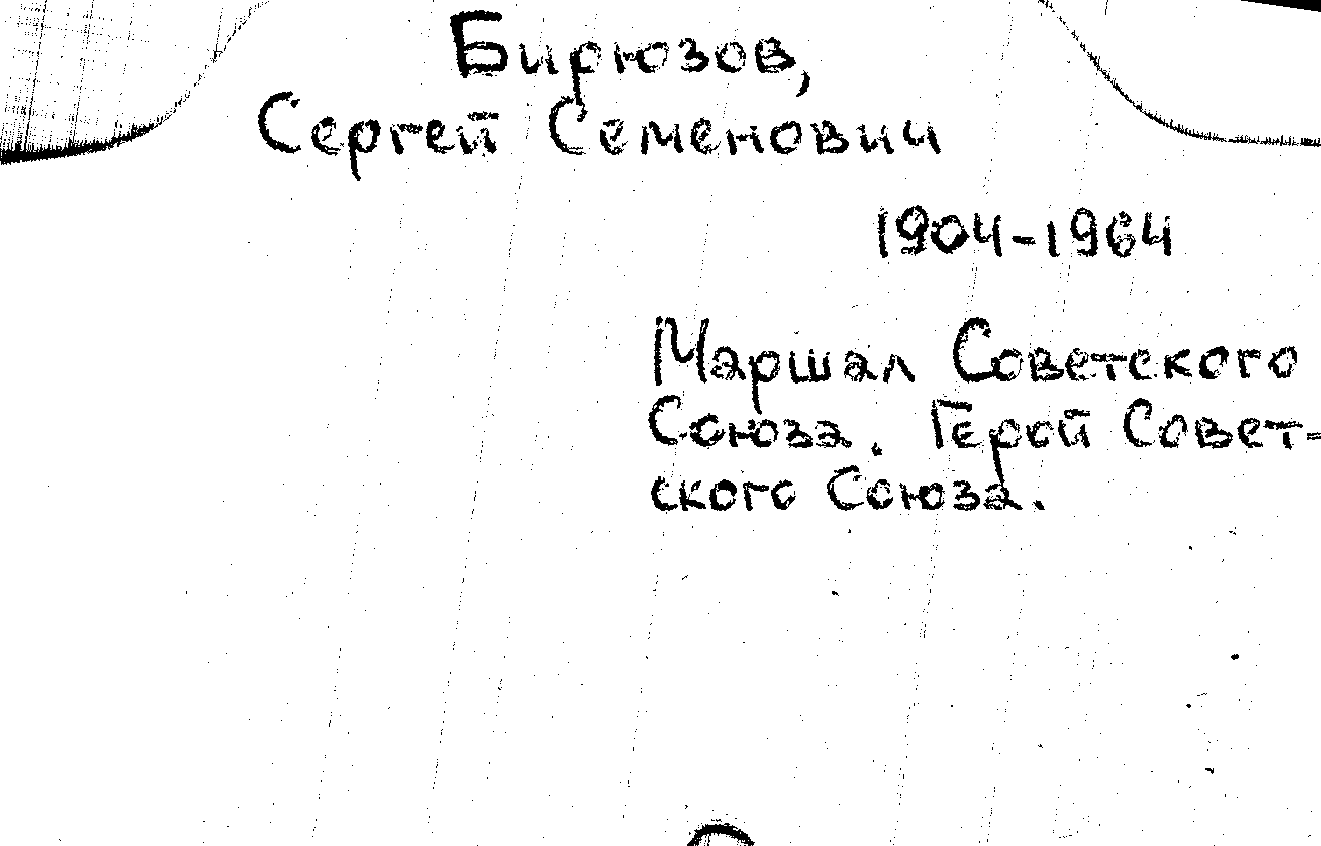 Бирюзов,
Сергей Семенович
1904-1964
Маршал Советского
Союза. Герой Совет-
ского Союза.